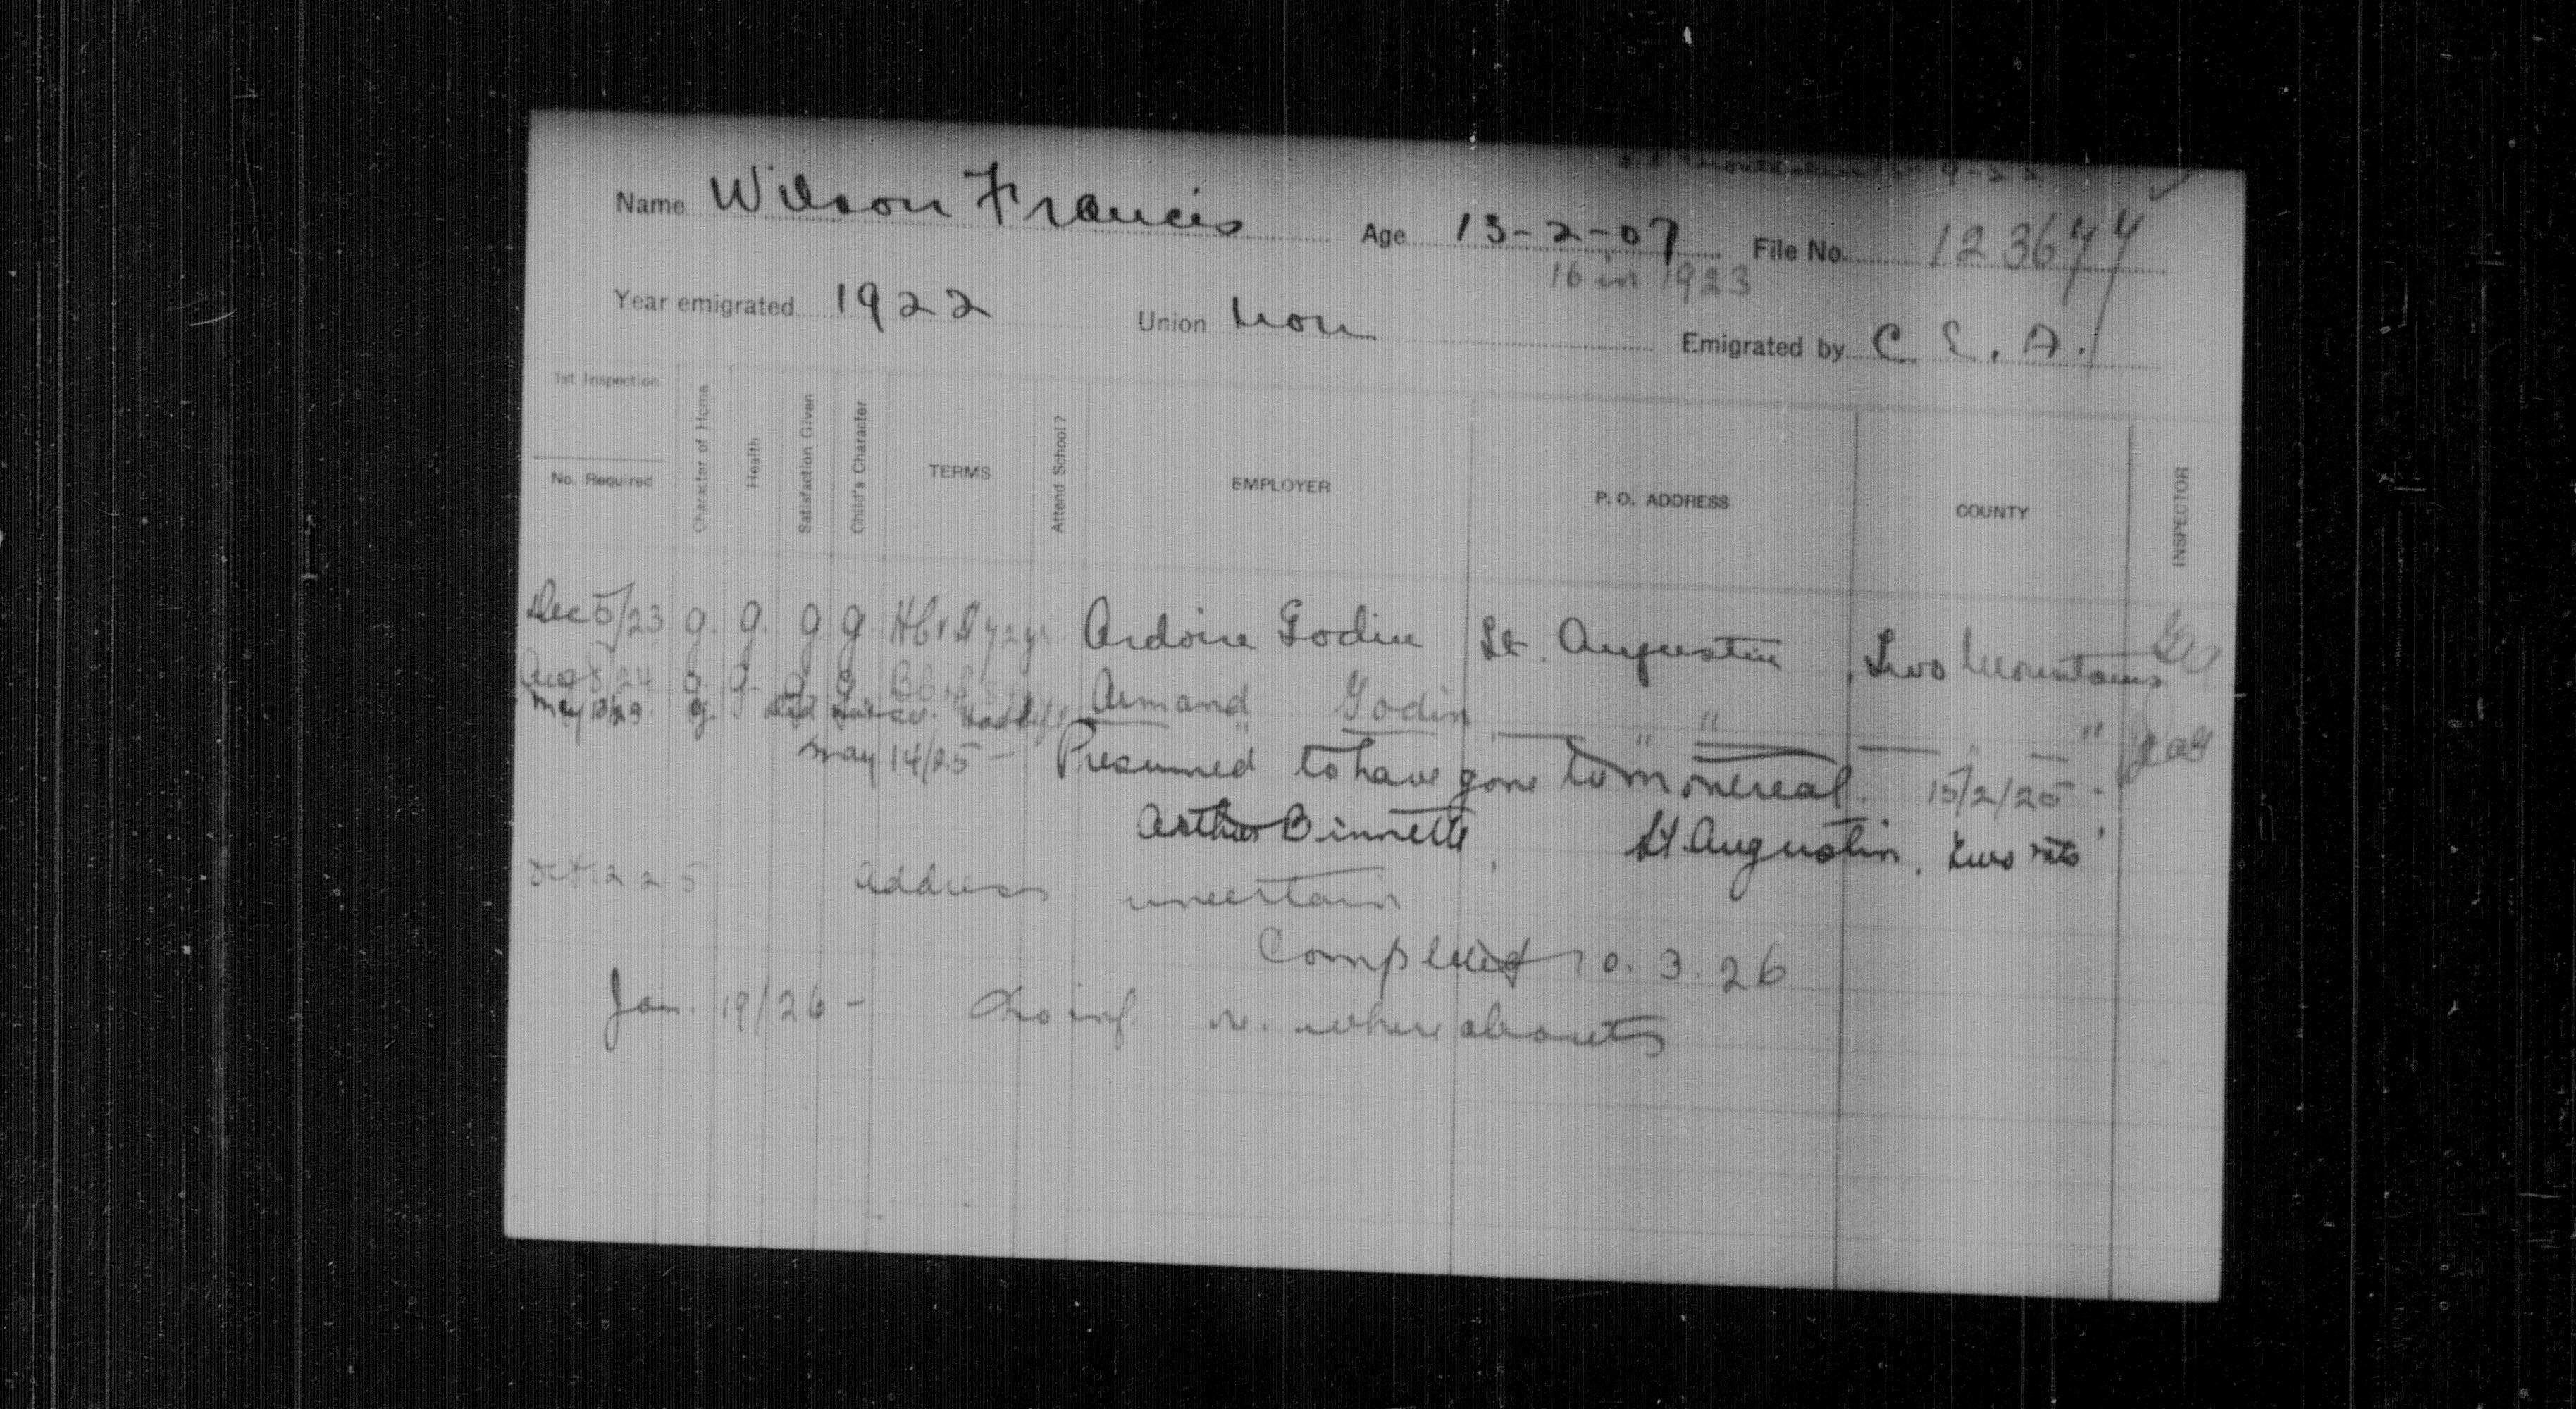 9-22
Name Wilson Francis Age 13-2-07 File No. 123677
16 in 1923
Year emigrated 1922 Union non Emigrated by C. E. A.
1st Inspection
No. Required Character of Home Health Satisfaction Given Child's Character TERMS Attend School? EMPLOYER P. O. ADDRESS COUNTY INSPECTOR
Dec 5/23 g. g. g. g. Godin St. Augustin Two Mountains
Aug 8/24 g. g. g. g. Armand Godin " "
May g. Had left " " "
May 14/25 - Presumed to have gone to Montreal. 15/2/25 -
Arthur Binnette, St. Augustin, Two Mts
12/25 Address uncertain
Completed 10. 3. 26
Jan. 19/26 - No inf. re. whereabouts